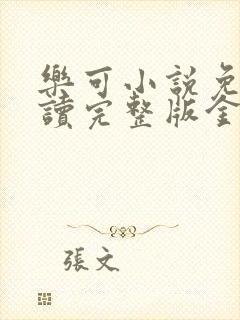 樂可小說免
讀完整版全
張文